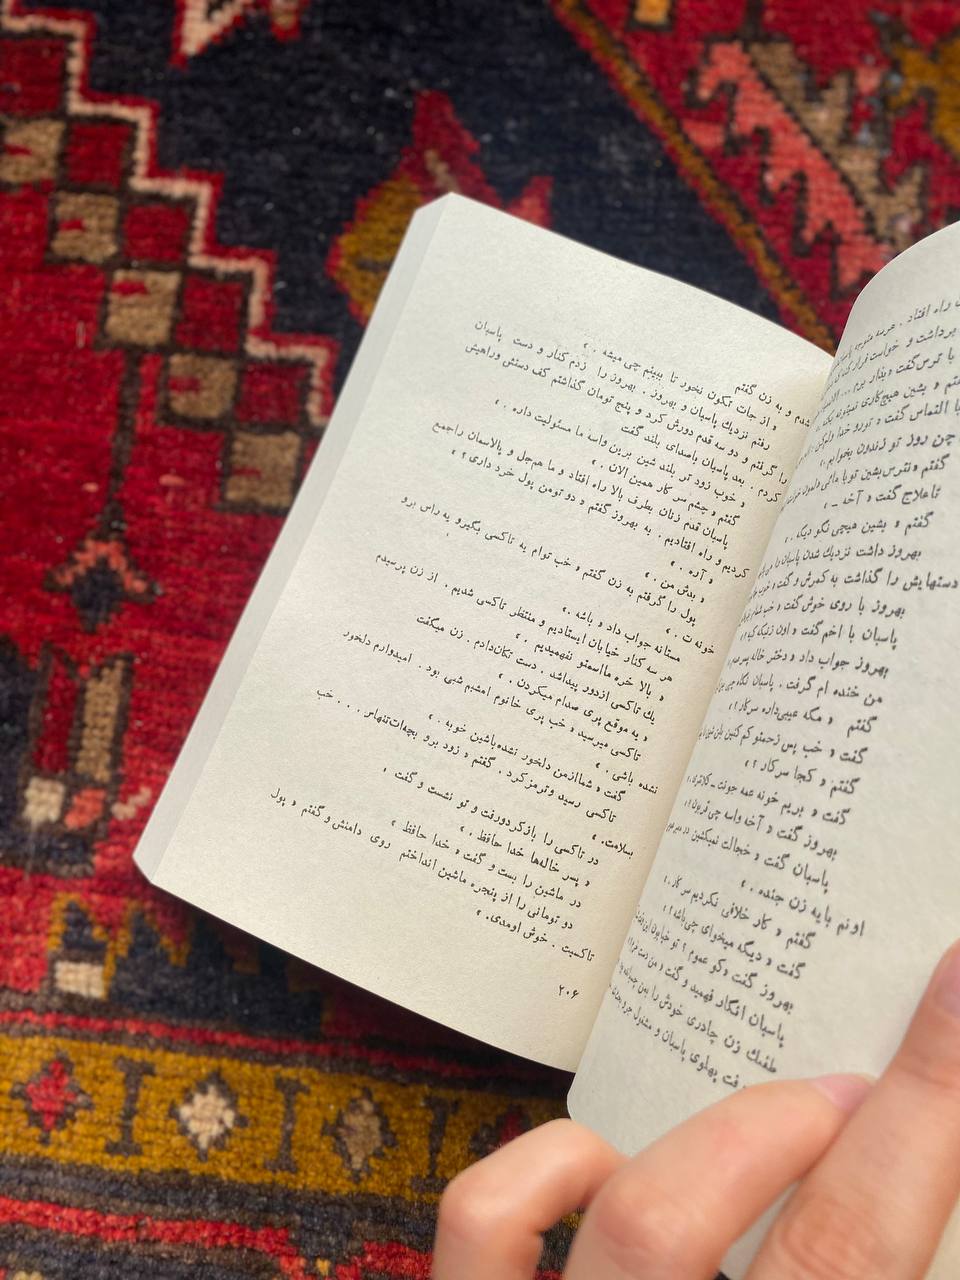 راه افتاد .
برداشت و خواست فرار کند
با ترس گفت « بذار برم . . .
« بشین هیچ کاری نمیتونه بکنه
با التماس گفت « تورو خدا ولم کن
چن روز تو زندون بخوابم . »
گفتم « نترس بشین تو با مائی
ناعلاج گفت « آخه ــ »
گفتم « بشین هیچی نگو دیگه . »
بهروز داشت نزدیك شدن پاسبان را
دستهایش را گذاشت به کمرش و گفت « خوب
بهروز با روی خوش گفت « خب
پاسبان با اخم گفت « اون زنیکه کیه ؟ »
بهروز جواب داد « دختر خاله
من خنده ام گرفت . پاسبان نگاه
گفتم « مگه عیبی‌داره سرکار ؟ »
گفت « خب پس زحمتو کم کنین
گفتم « کجا سرکار ؟ »
گفت « بریم خونه عمه جونت ــ کلانتری . »
بهروز گفت « آخه واسه چی قربون ؟ »
پاسبان گفت « خجالت نمیکشین
اونم با یه زن جنده . »
گفتم « کار خلافی نکردیم سرکار . »
گفت « دیگه میخوای چی باشه ؟ »
بهروز گفت « کو عموم ؟ تو خیابون
پاسبان انگار فهمید و گفت « من
طفلك زن چادری خودش را بمن چسبانده
رفت پهلوی پاسبان و مشغول
شدم و به زن گفتم
« از جات تکون نخور تا ببینم چی میشه . »
رفتم نزدیك پاسبان و بهروز . بهروز را زدم کنار و دست پاسبان
را گرفتم و دو سه قدم دورش کرد و پنج تومان گذاشتم کف دستش وراهیش
کردم . بعد پاسبان باصدای بلند گفت
« خوب زود تر بلند شین برین واسه ما مسئولیت داره . »
گفتم « چشم سر کار همین الان . »
پاسبان قدم زنان بطرف بالا راه افتاد و ما هم‌جل و پالاسمان راجمع
کردیم و راه افتادیم . به بهروز گفتم « دو تومن پول خرد داری ؟ »
« آره . »
« بدش من . »
پول را گرفتم به زن گفتم « خب توام یه تاکسی بگیرو یه راس برو
خونه ت . »
مستانه جواب داد « باشه . »
هر سه کنار خیابان ایستادیم و منتظر تاکسی شدیم . از زن پرسیدم
« بالا خره مااسمتو نفهمیدیم . »
یك تاکسی ازدور پیداشد . دست تکان‌دادم . زن میگفت
« یه موقع پری صدام میکردن . »
تاکسی میرسید « خب پری خانوم امشبم شبی بود . امیدوارم دلخور
نشده باشی . »
گفت « شماازمن دلخور نشده‌باشین خوبه . »
تاکسی رسید وترمزکرد . گفتم « زود برو بچه‌ات‌تنهاس . . . . خب
بسلامت . »
در تاکسی را بازکردورفت و تو نشست و گفت «
« پسر خاله‌ها خدا حافظ . »
در ماشین را بست و گفت « خدا حافظ »
دو تومانی را از پنجره ماشین انداختم روی دامنش و گفتم « پول
تاکسیت . خوش اومدی . »
۲۰۶